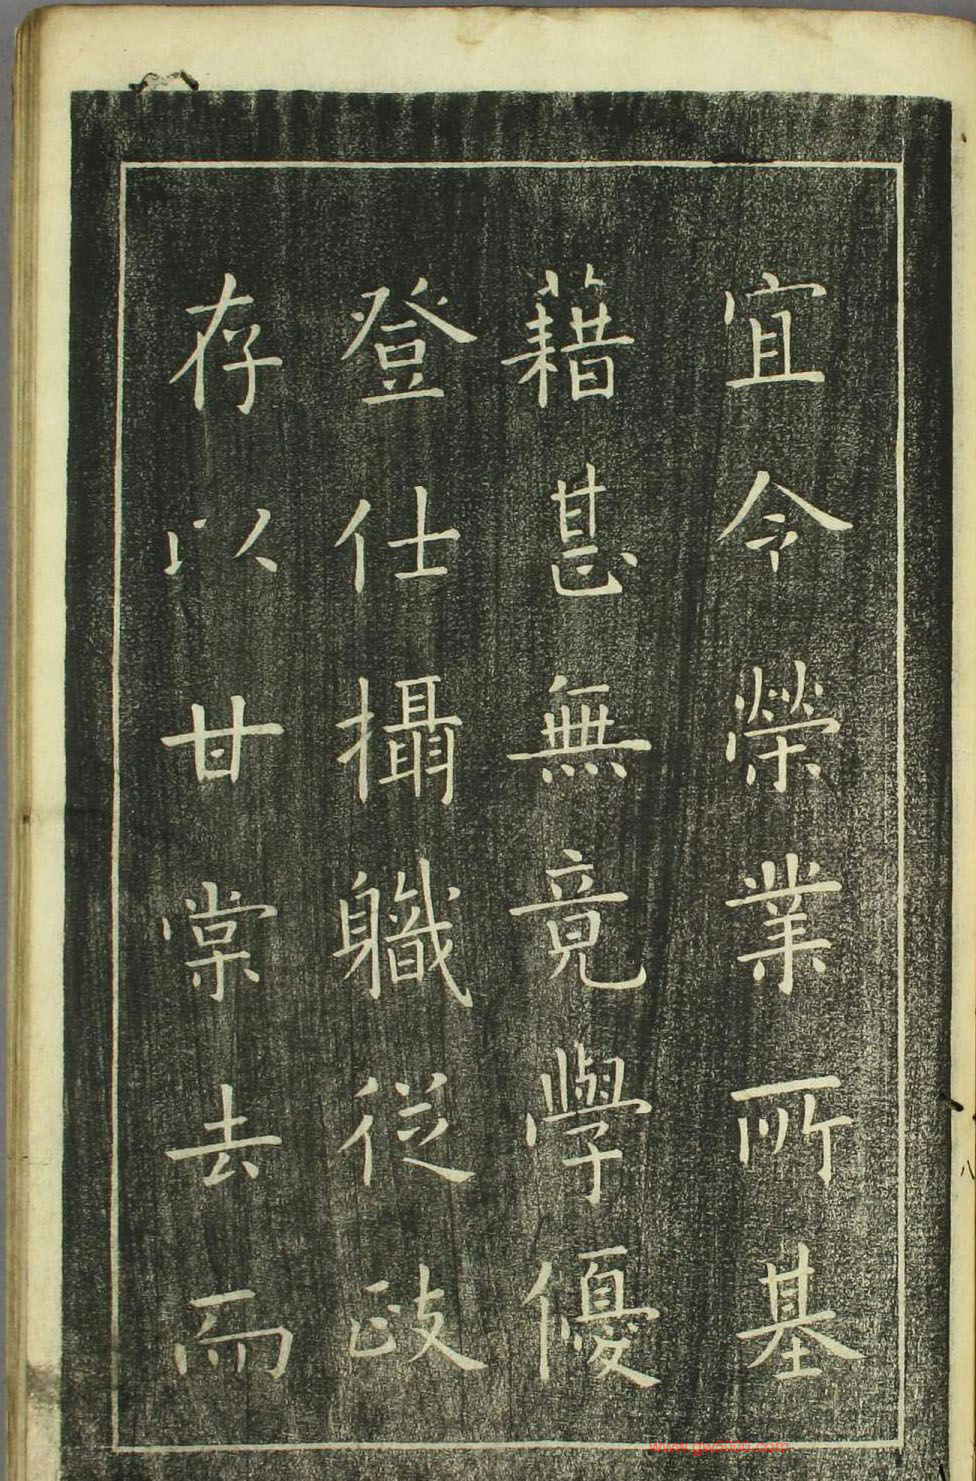 宜令榮業所基
藉甚無竟學優
登仕攝職從政
存以甘棠去而
www.gw5000.com